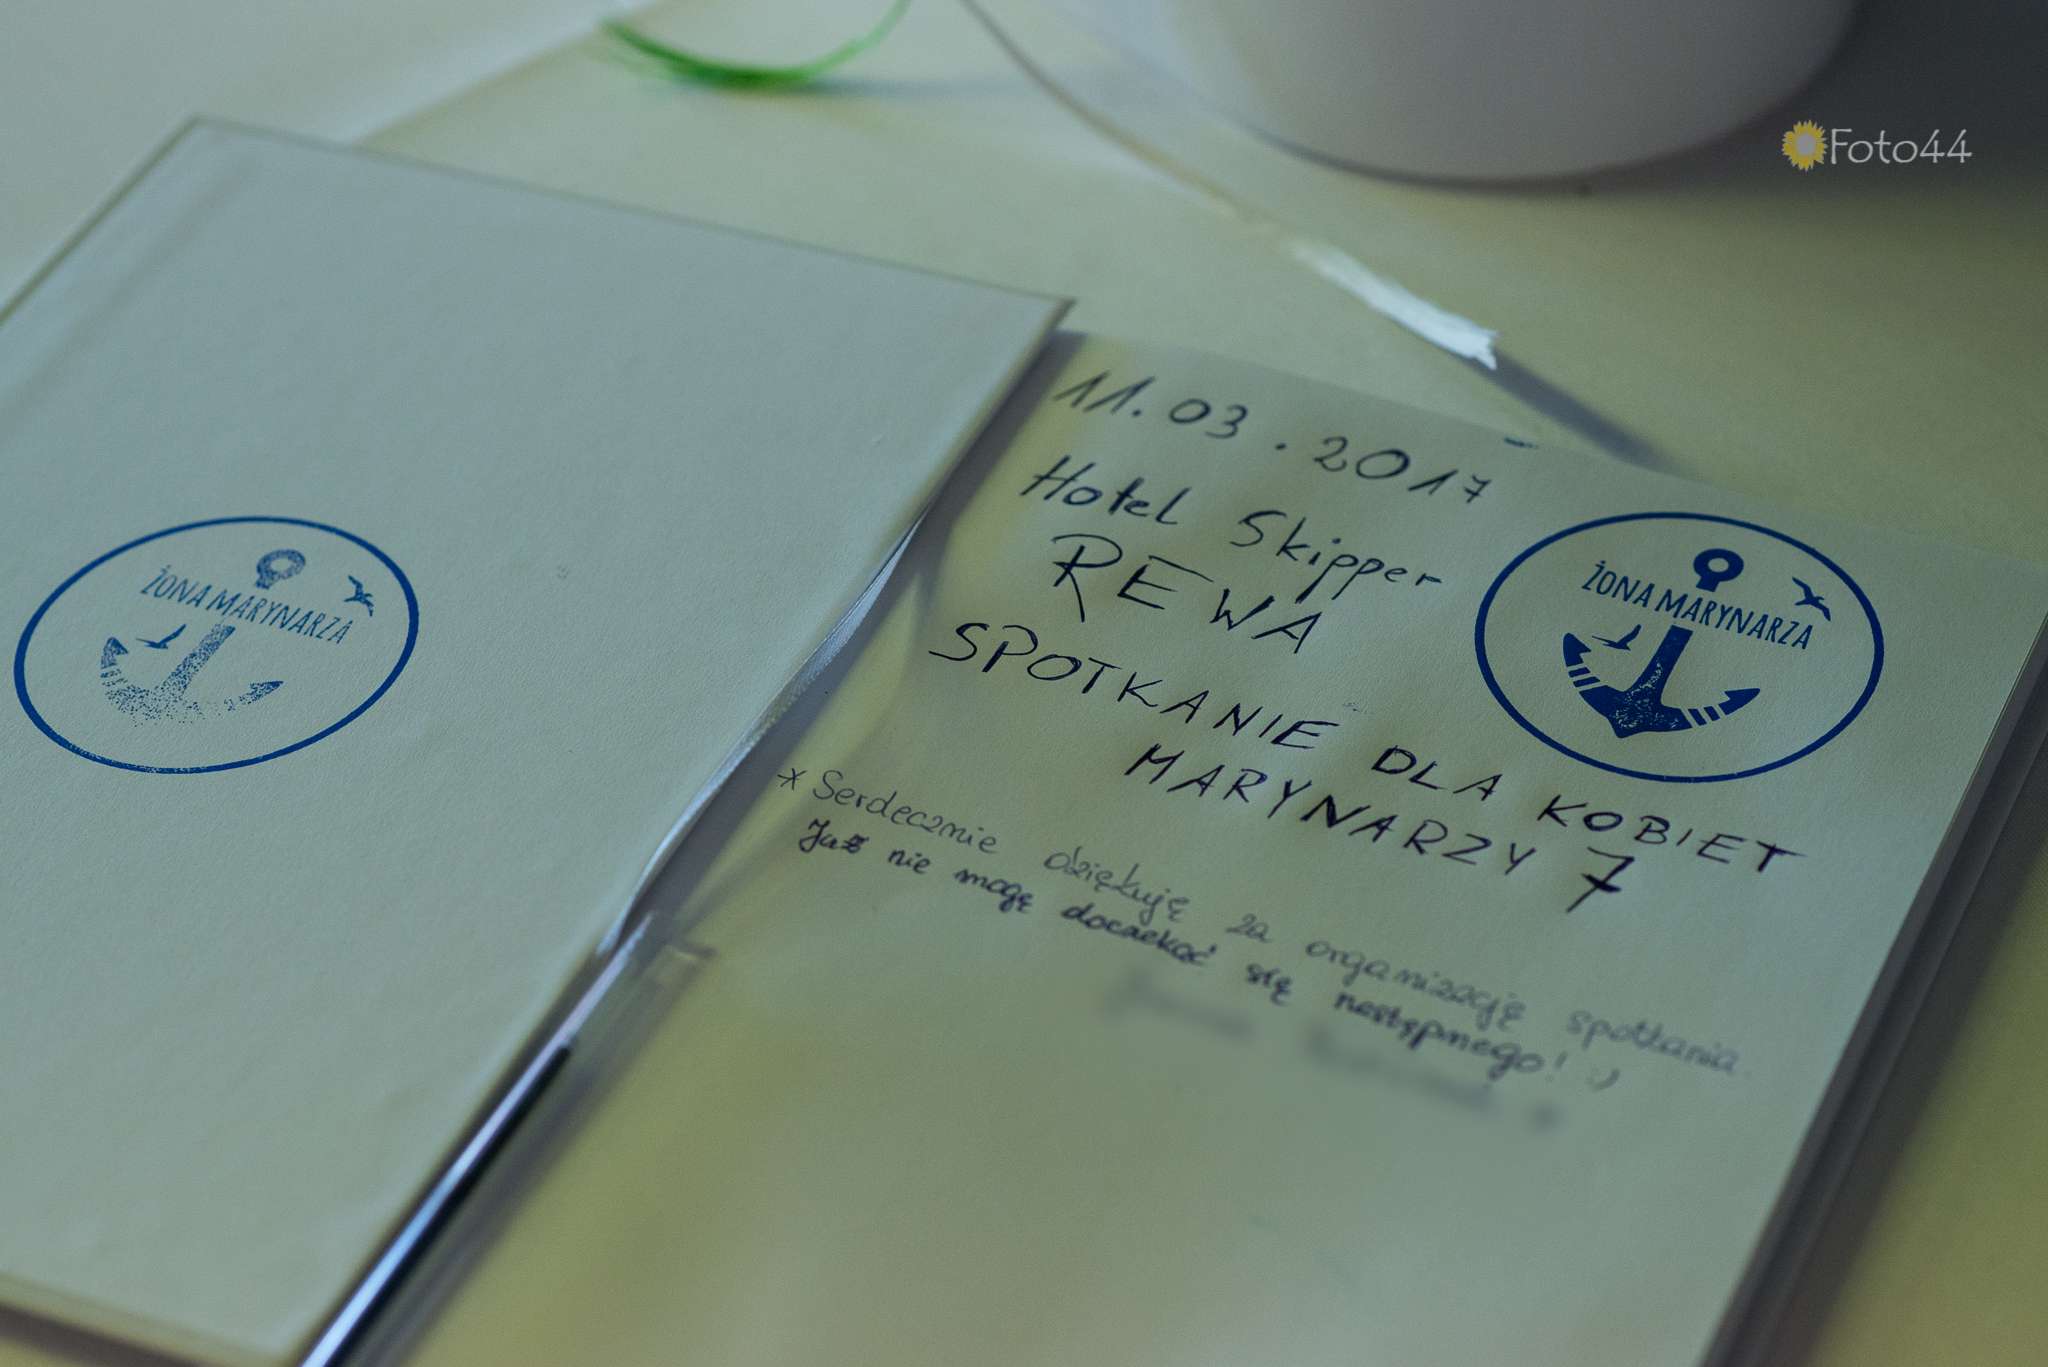 Foto44
ŻONA MARYNARZA
11.03.2017
Hotel Skipper
REWA
ŻONA MARYNARZA
SPOTKANIE DLA KOBIET
MARYNARZY 7
* Serdecznie dziękuję za organizację spotkania.
Już nie mogę doczekać się następnego! :)